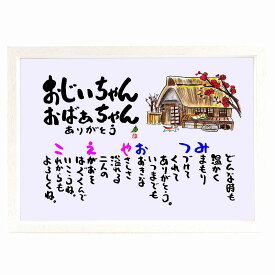 おじいちゃん
おばあちゃん
ありがとう
どんな時も
温かく
みまもり
つづけて
くれて
ありがとう。
いつまでも
おおきな
やさしさ
溢れる
二人の
えがおを
はぐくんで
いこうね。
これからも
よろしくね。